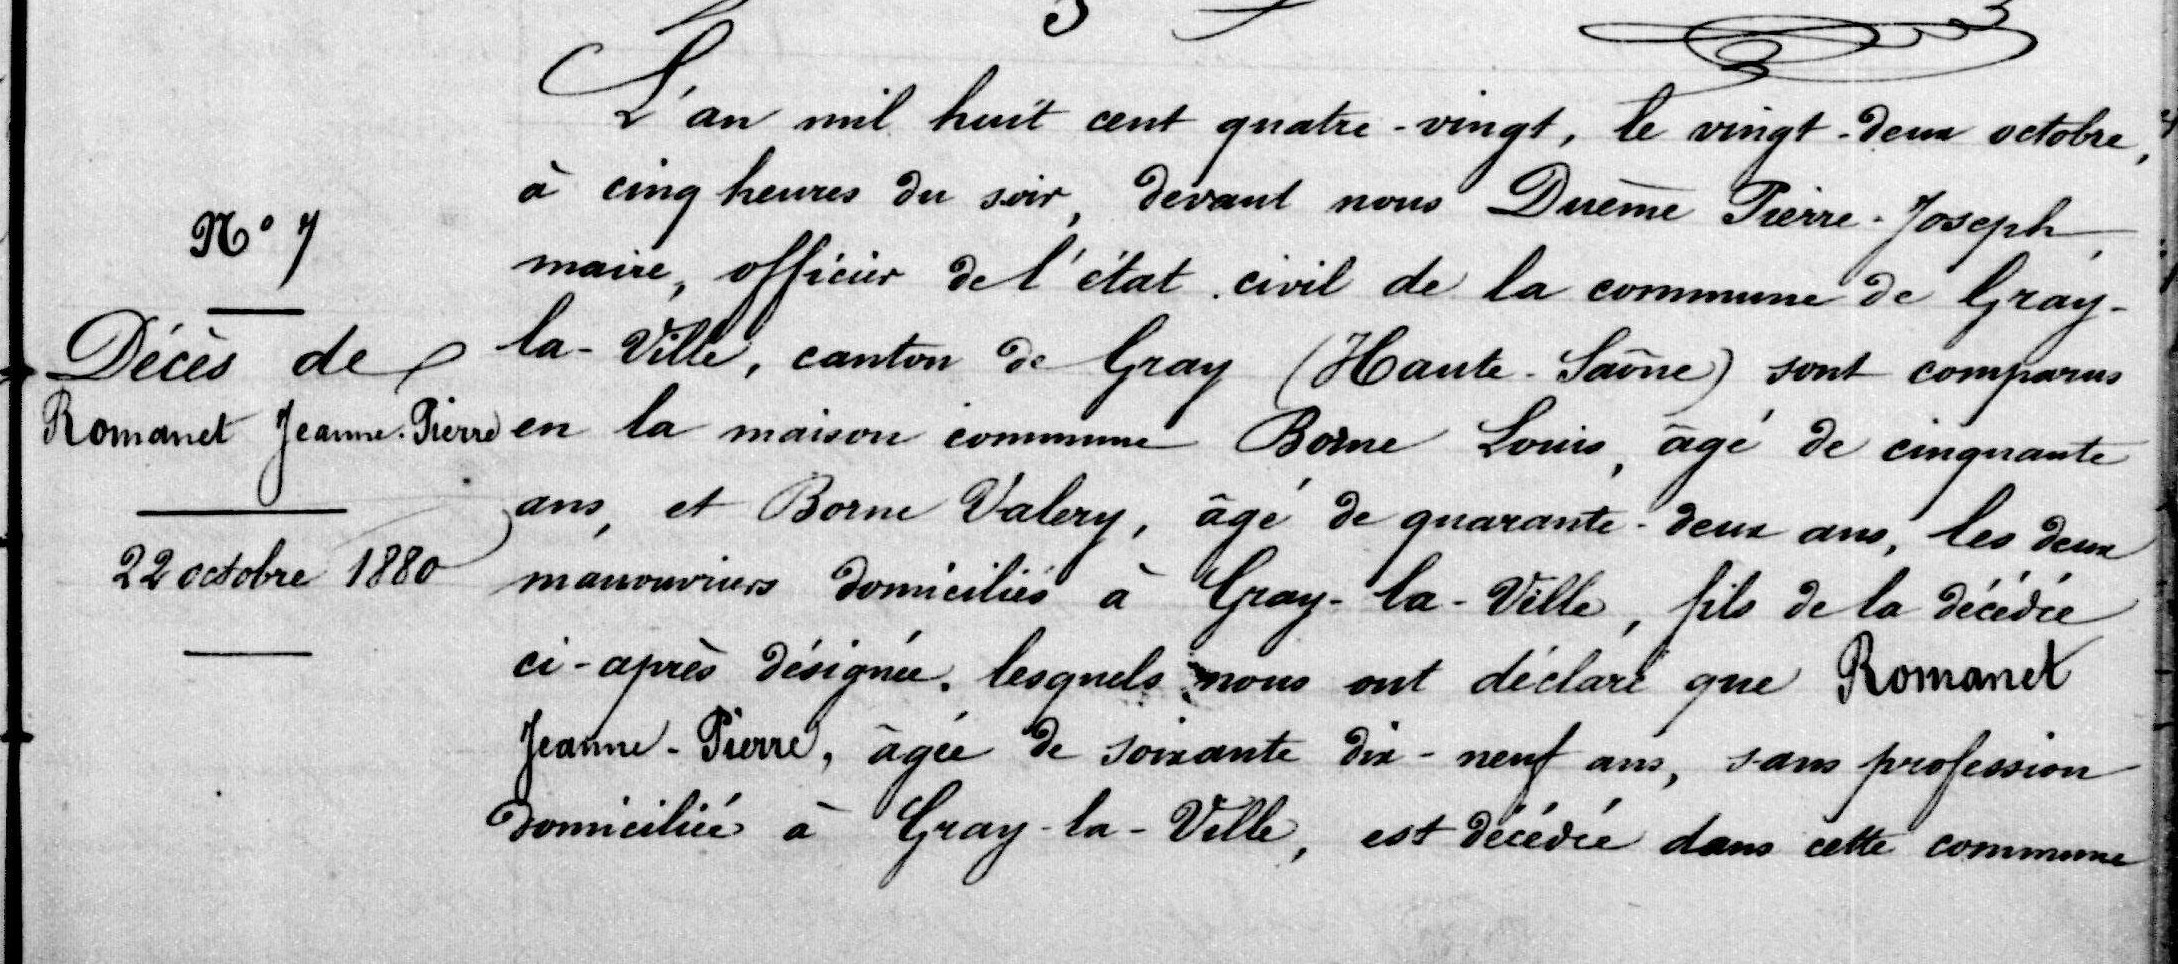 N° 7
Décès de
Romanet Jeanne-Pierre
22 octobre 1880
L'an mil huit cent quatre-vingt, le vingt-deux octobre,
à cinq heures du soir, devant nous Duême Pierre-Joseph,
maire, officier de l'état civil de la commune de Gray-
la-Ville, canton de Gray (Haute-Saône) sont comparus
en la maison commune Borne Louis, âgé de cinquante
ans, et Borne Valery, âgé de quarante-deux ans, les deux
manouvriers domiciliés à Gray-la-Ville, fils de la décédée
ci-après désignée, lesquels nous ont déclaré que Romanet
Jeanne-Pierre, âgée de soixante dix-neuf ans, sans profession
domiciliée à Gray-la-Ville, est décédée dans cette commune